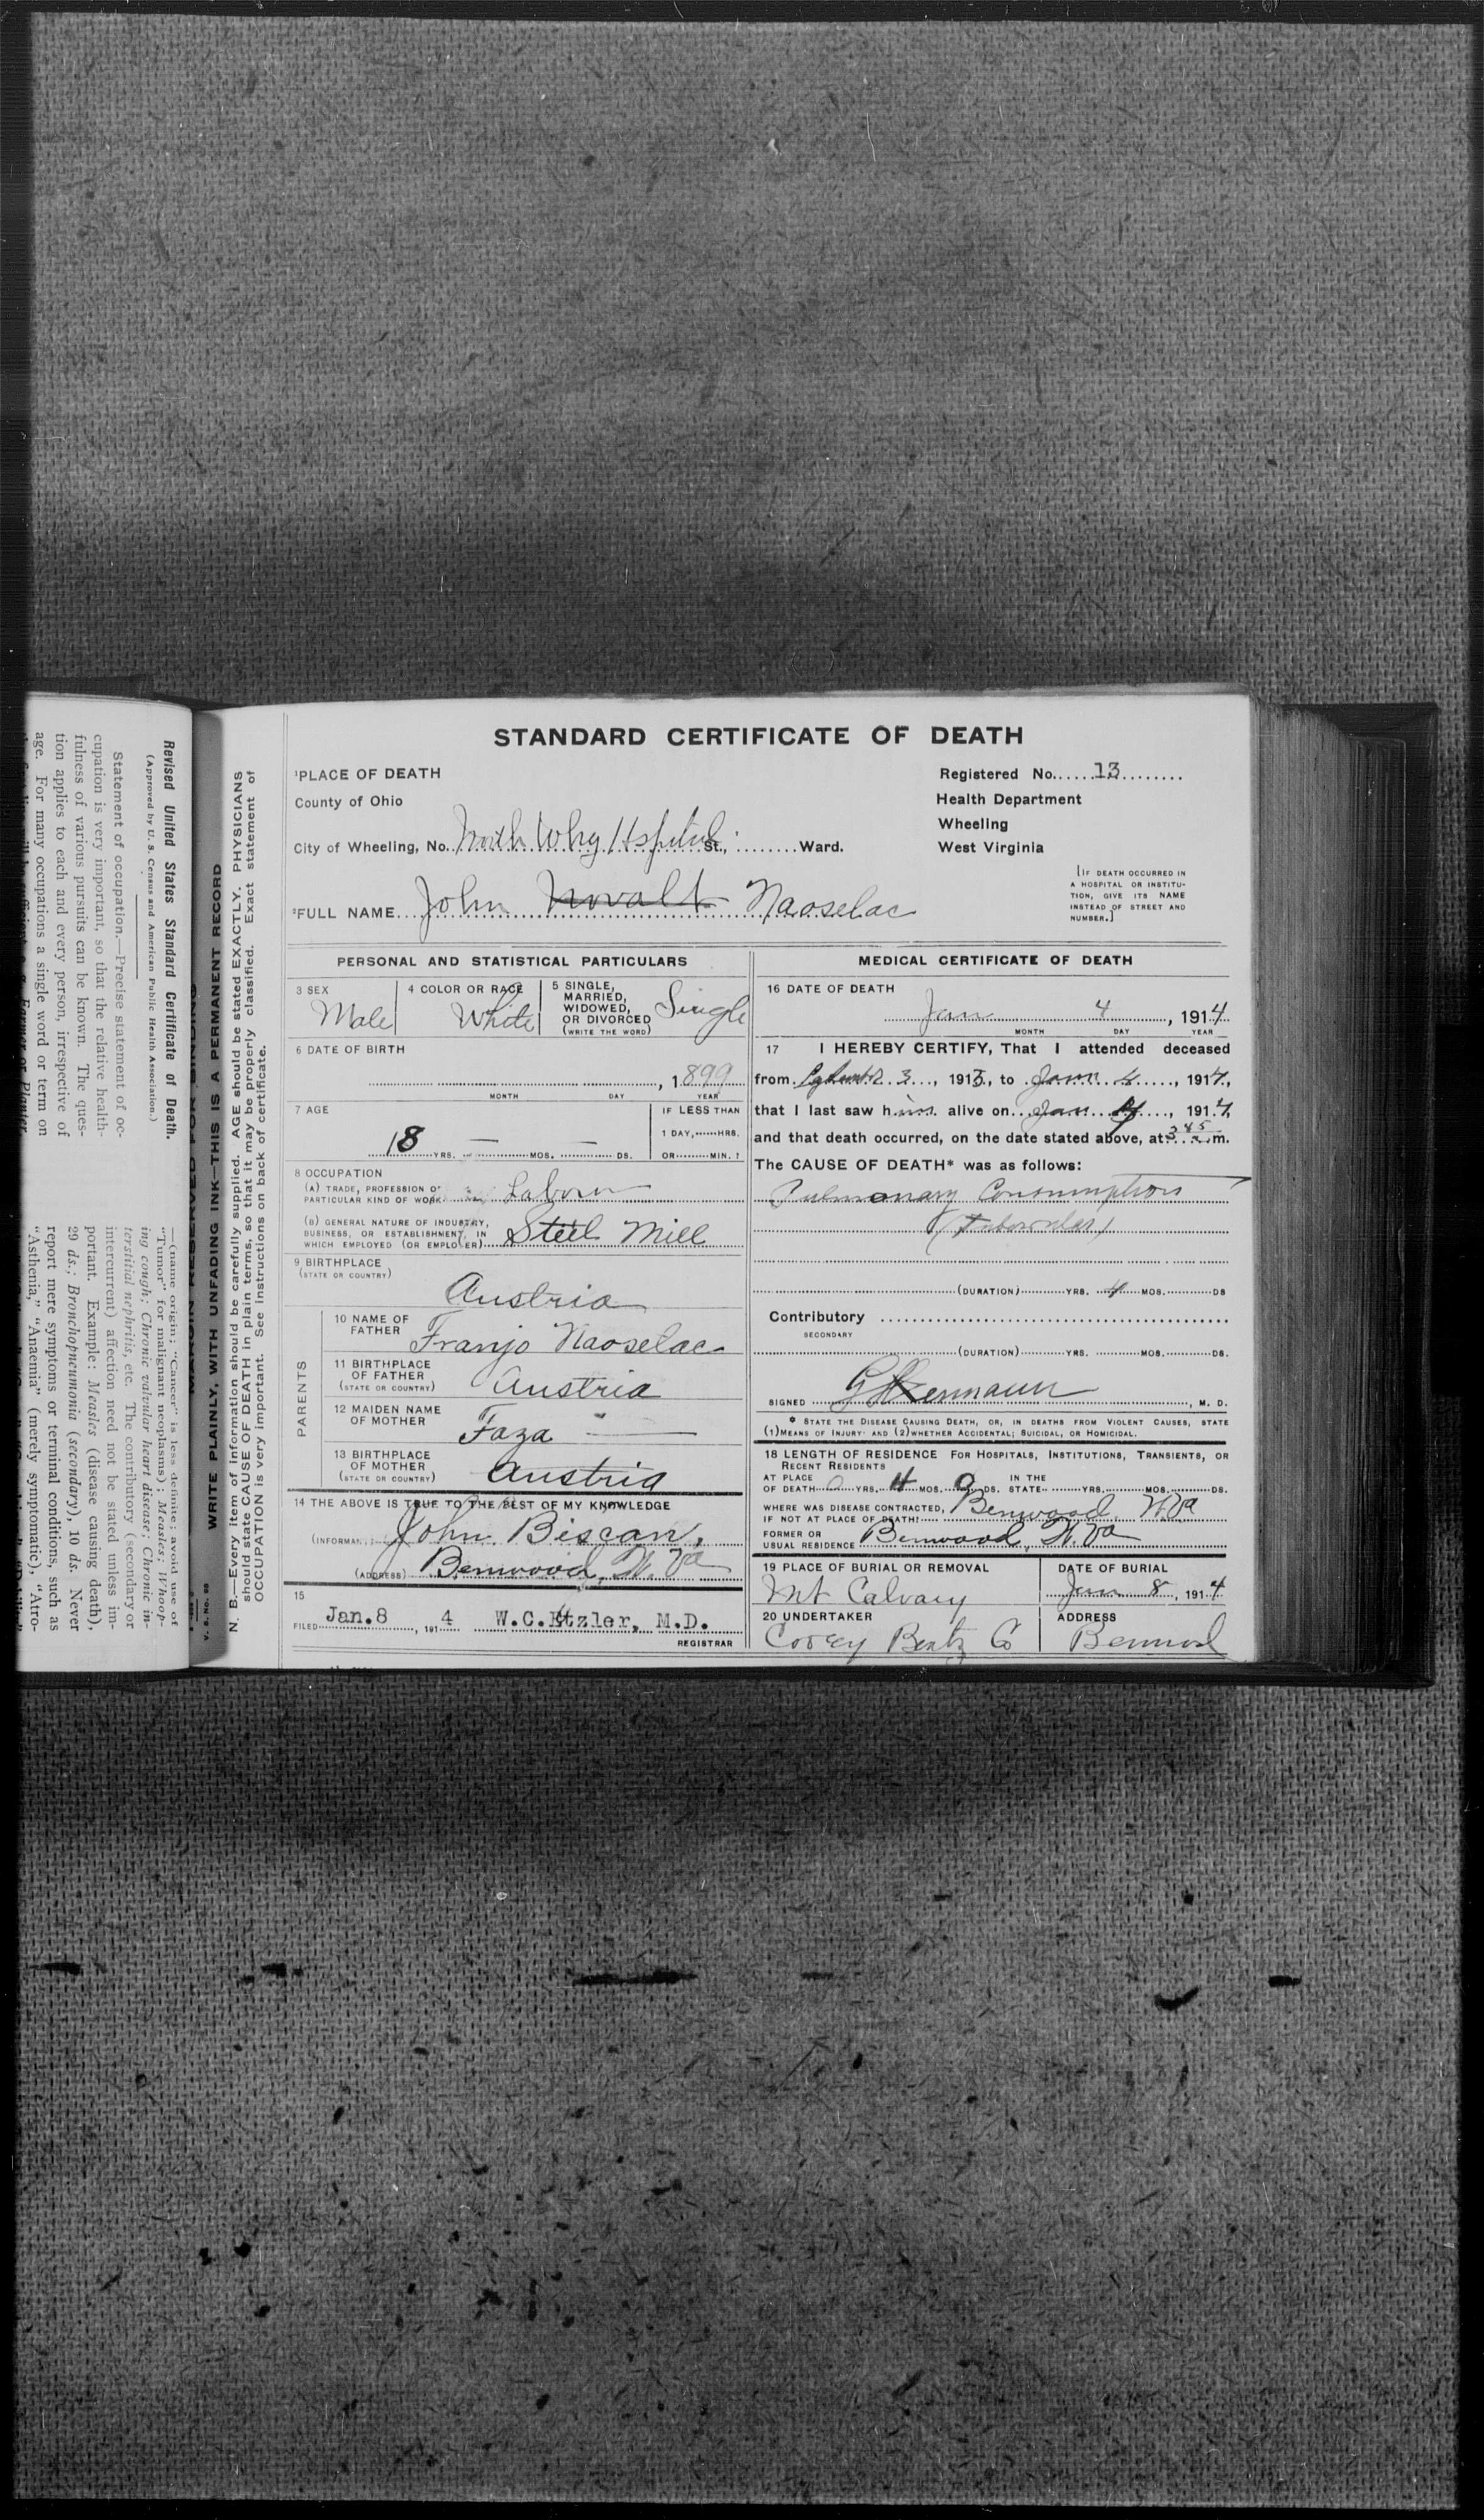 STANDARD CERTIFICATE OF DEATH
¹PLACE OF DEATH
County of Ohio
City of Wheeling, No. North Whg Hspital St., Ward.
Registered No. 13
Health Department
Wheeling
West Virginia
[IF DEATH OCCURRED IN
A HOSPITAL OR INSTITU-
TION, GIVE ITS NAME
INSTEAD OF STREET AND
NUMBER.]
²FULL NAME John Naoselac
PERSONAL AND STATISTICAL PARTICULARS
3 SEX
Male
4 COLOR OR RACE
White
5 SINGLE,
MARRIED,
WIDOWED,
OR DIVORCED
(WRITE THE WORD)
Single
6 DATE OF BIRTH
, 1899
MONTH DAY YEAR
7 AGE
18 YRS. — MOS. — DS.
IF LESS THAN
1 DAY, HRS.
OR MIN. ?
8 OCCUPATION
(A) TRADE, PROFESSION OR
PARTICULAR KIND OF WORK Laborer
(B) GENERAL NATURE OF INDUSTRY,
BUSINESS, OR ESTABLISHMENT, IN
WHICH EMPLOYED (OR EMPLOYER) Steel Mill
9 BIRTHPLACE
(STATE OR COUNTRY)
Austria
PARENTS
10 NAME OF
FATHER
Franjo Naoselac
11 BIRTHPLACE
OF FATHER
(STATE OR COUNTRY)
Austria
12 MAIDEN NAME
OF MOTHER
Faza —
13 BIRTHPLACE
OF MOTHER
(STATE OR COUNTRY)
Austria
14 THE ABOVE IS TRUE TO THE BEST OF MY KNOWLEDGE
(INFORMANT) John Biscan,
(ADDRESS) Benwood, W. Va
15
FILED Jan. 8, 1914 W.C. Etzler, M.D.
REGISTRAR
MEDICAL CERTIFICATE OF DEATH
16 DATE OF DEATH
Jan 4, 1914
MONTH DAY YEAR
17 I HEREBY CERTIFY, That I attended deceased
from 3, 1913, to Jan 4, 1914,
that I last saw him alive on Jan 4, 1914,
and that death occurred, on the date stated above, at 3 45 a.m.
The CAUSE OF DEATH* was as follows:
Pulmonary Consumption
(Tubercular)
(DURATION) YRS. 4 MOS. DS
Contributory
SECONDARY
(DURATION) YRS. MOS. DS.
SIGNED , M. D.
* STATE THE DISEASE CAUSING DEATH, OR, IN DEATHS FROM VIOLENT CAUSES, STATE
(1) MEANS OF INJURY AND (2) WHETHER ACCIDENTAL; SUICIDAL, OR HOMICIDAL.
18 LENGTH OF RESIDENCE FOR HOSPITALS, INSTITUTIONS, TRANSIENTS, OR
RECENT RESIDENTS
AT PLACE
OF DEATH 0 YRS. 4 MOS. 0 DS. IN THE STATE YRS. MOS. DS.
WHERE WAS DISEASE CONTRACTED,
IF NOT AT PLACE OF DEATH? Benwood, W.Va
FORMER OR
USUAL RESIDENCE Benwood, W. Va
19 PLACE OF BURIAL OR REMOVAL
Mt Calvary
DATE OF BURIAL
Jan 8, 1914
20 UNDERTAKER
Cooey Bentz Co
ADDRESS
Benwood
N. B.—Every item of information should be carefully supplied. AGE should be stated EXACTLY. PHYSICIANS
should state CAUSE OF DEATH in plain terms, so that it may be properly classified. Exact statement of
OCCUPATION is very important. See instructions on back of certificate.
WRITE PLAINLY, WITH UNFADING INK—THIS IS A PERMANENT RECORD
MARGIN RESERVED FOR BINDING
Revised United States Standard Certificate of Death.
(Approved by U. S. Census and American Public Health Association.)
Statement of occupation.—Precise statement of oc-
cupation is very important, so that the relative health-
fulness of various pursuits can be known. The ques-
tion applies to each and every person, irrespective of
age. For many occupations a single word or term on
—(name origin; "Cancer" is less definite; avoid use of
"Tumor" for malignant neoplasms); Measles; Whoop-
ing cough; Chronic valvular heart disease; Chronic in-
terstitial nephritis, etc. The contributory (secondary or
intercurrent) affection need not be stated unless im-
portant. Example: Measles (disease causing death),
29 ds.; Bronchopneumonia (secondary), 10 ds. Never
report mere symptoms or terminal conditions, such as
"Asthenia," "Anaemia" (merely symptomatic), "Atro-